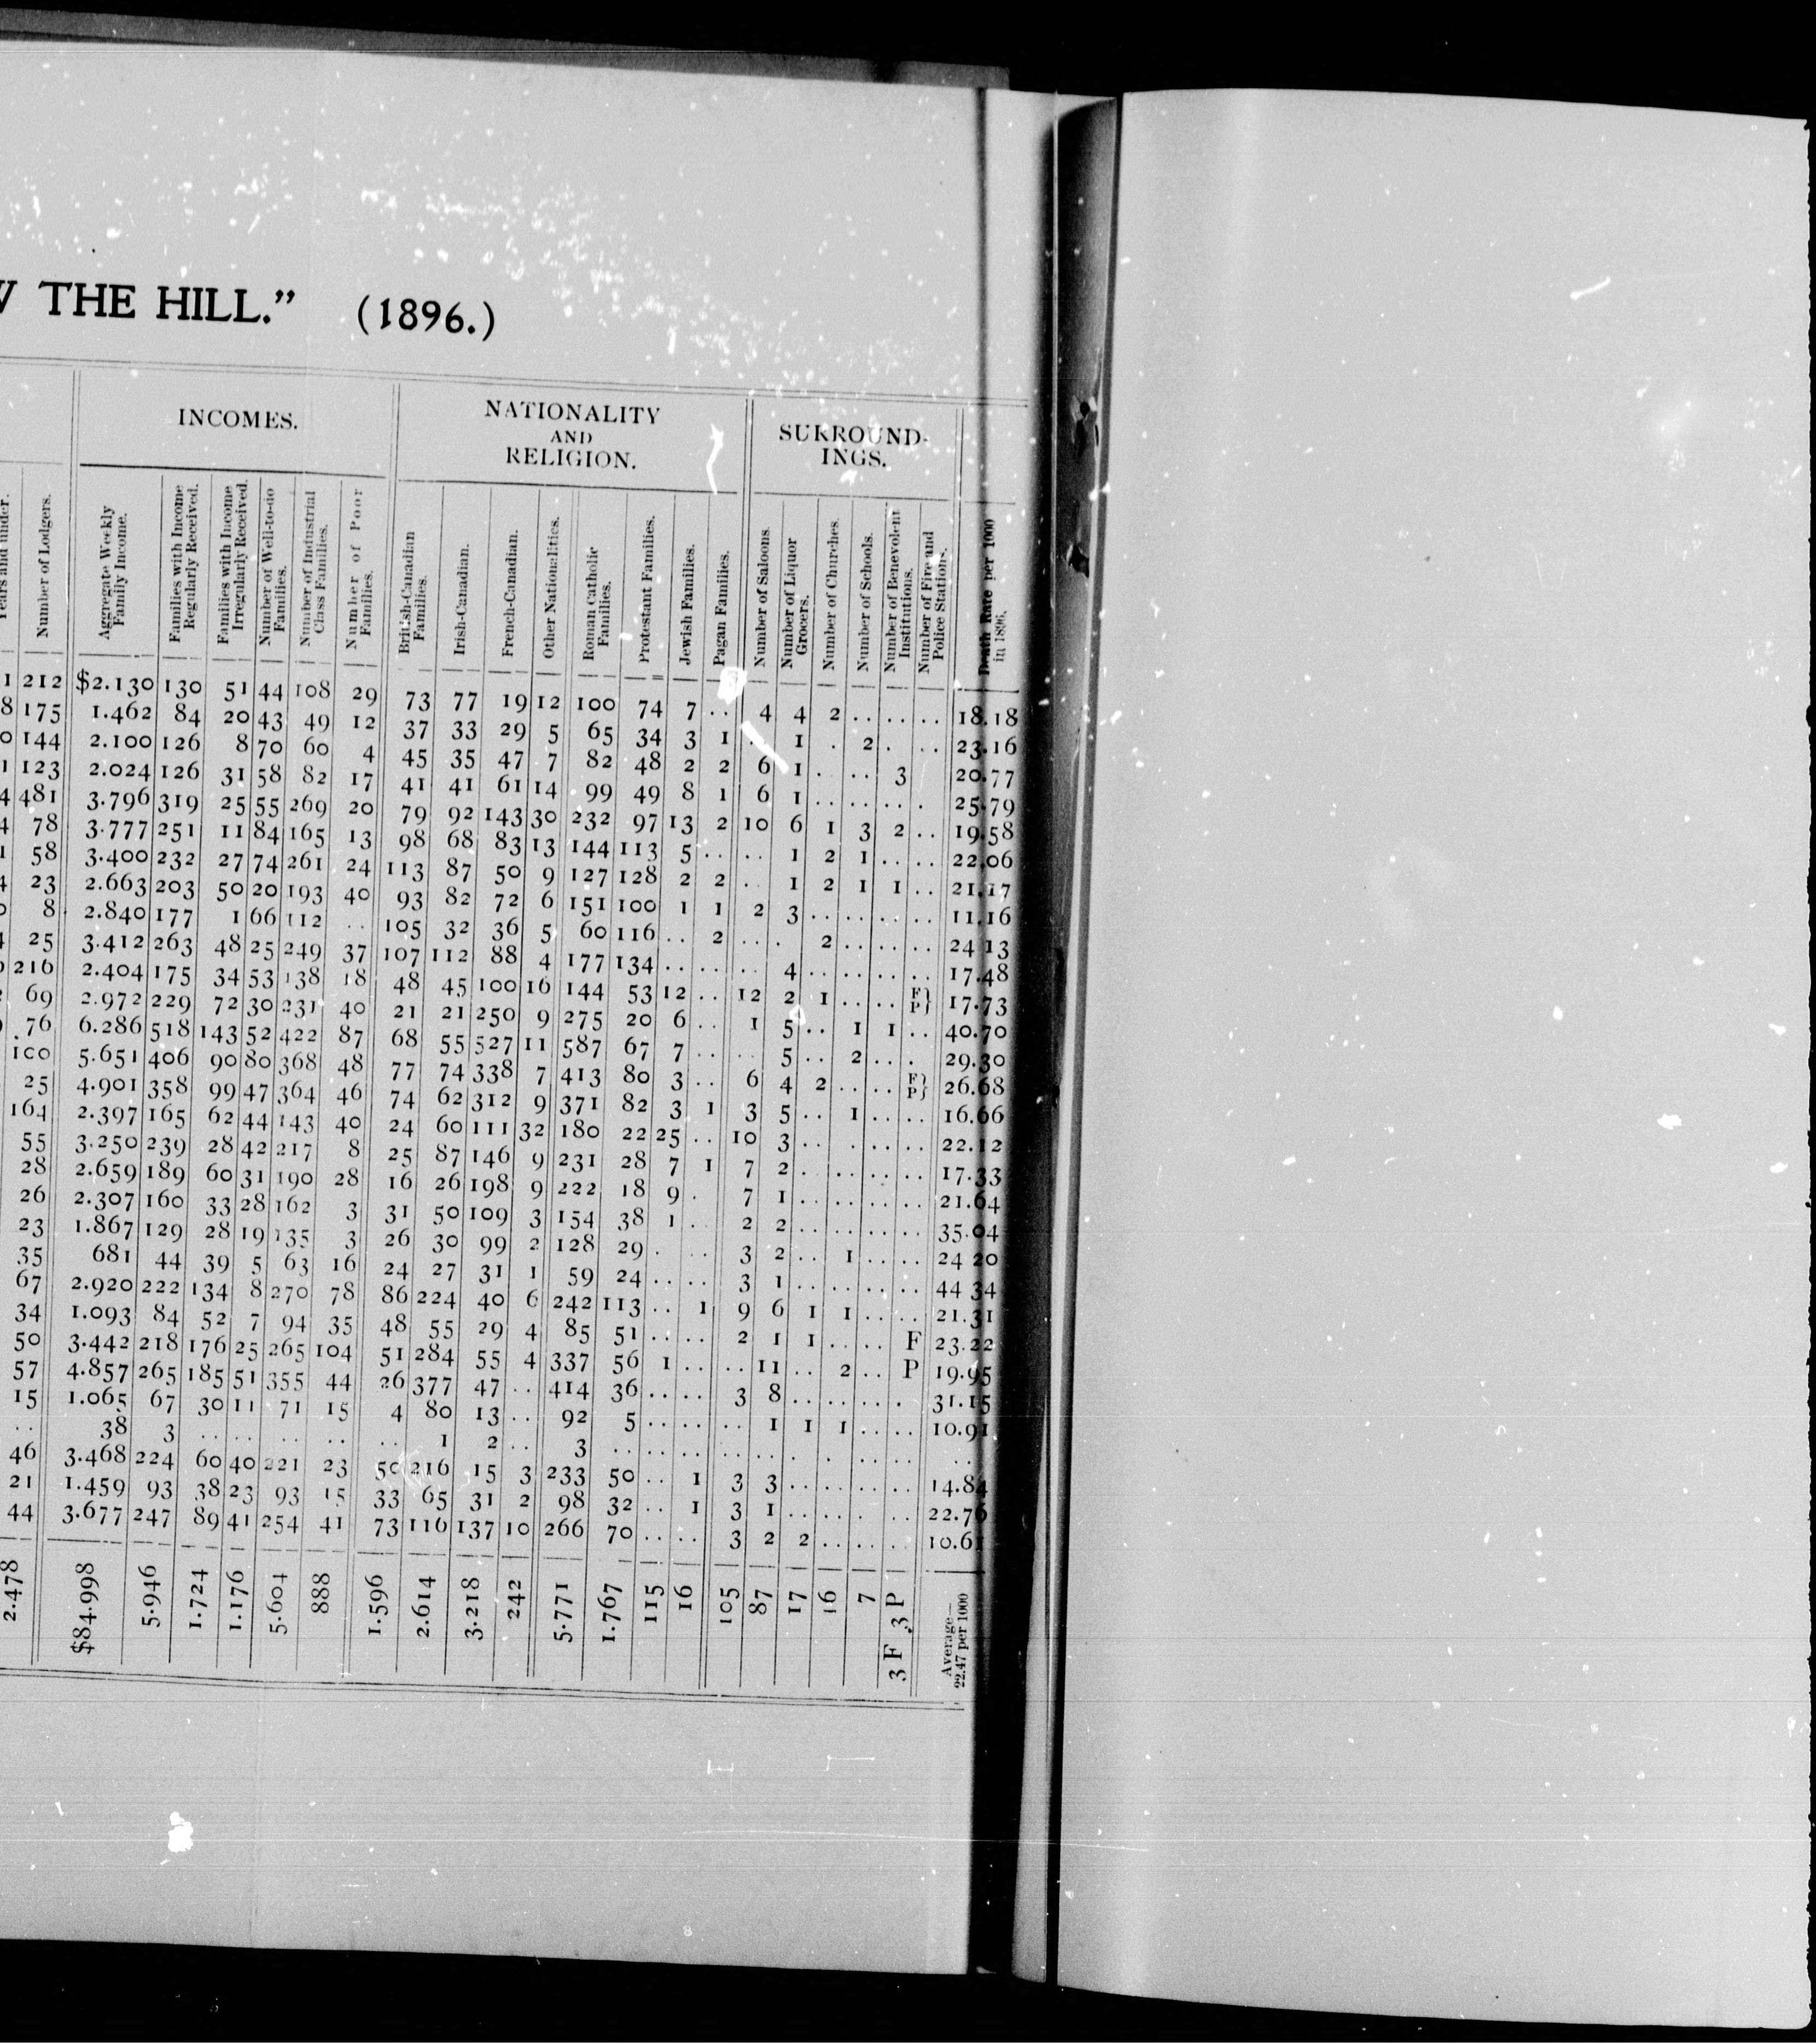 THE HILL." (1896.)
INCOMES.
NATIONALITY
AND
RELIGION.
SURROUND-
INGS.
Years and under.
Number of Lodgers.
Aggregate Weekly
Family Income.
Families with Income
Regularly Received.
Families with Income
Irregularly Received.
Number of Well-to-do
Families.
Number of Industrial
Class Families.
Number of Poor
Families.
British-Canadian
Families.
Irish-Canadian.
French-Canadian.
Other Nationalities.
Roman Catholic
Families.
Protestant Families.
Jewish Families.
Pagan Families.
Number of Saloons.
Number of Liquor
Grocers.
Number of Churches.
Number of Schools.
Number of Benevolent
Institutions.
Number of Fire and
Police Stations.
Death Rate per 1000
in 1896.
1 212 $2.130 130 51 44 108 29 73 77 19 12 100 74 7 .. 4 4 2 .. .. .. 18.18
8 175 1.462 84 20 43 49 12 37 33 29 5 65 34 3 1 . 1 . 2 . .. 23.16
0 144 2.100 126 8 70 60 4 45 35 47 7 82 48 2 2 6 1 . .. 3 20.77
1 123 2.024 126 31 58 82 17 41 41 61 14 99 49 8 1 6 1 .. .. .. . 25.79
4 481 3.796 319 25 55 269 20 79 92 143 30 232 97 13 2 10 6 1 3 2 .. 19.58
4 78 3.777 251 11 84 165 13 98 68 83 13 144 113 5 .. .. 1 2 1 .. .. 22.06
1 58 3.400 232 27 74 261 24 113 87 50 9 127 128 2 2 .. 1 2 1 1 .. 21.17
4 23 2.663 203 50 20 193 40 93 82 72 6 151 100 1 1 2 3 .. .. .. .. 11.16
0 8 2.840 177 1 66 112 .. 105 32 36 5 60 116 .. 2 .. . 2 .. .. .. 24 13
25 3.412 263 48 25 249 37 107 112 88 4 177 134 .. .. .. 4 .. .. .. .. 17.48
216 2.404 175 34 53 138 18 48 45 100 16 144 53 12 .. 12 2 1 .. .. F P} 17.73
69 2.972 229 72 30 231 40 21 21 250 9 275 20 6 .. 1 5 .. 1 1 .. 40.70
76 6.286 518 143 52 422 87 68 55 527 11 587 67 7 .. .. 5 .. 2 .. . 29.30
100 5.651 406 90 80 368 48 77 74 338 7 413 80 3 .. 6 4 2 .. .. F P} 26.68
25 4.901 358 99 47 364 46 74 62 312 9 371 82 3 1 3 5 .. 1 .. .. 16.66
164 2.397 165 62 44 143 40 24 60 111 32 180 22 25 .. 10 3 .. .. .. .. 22.12
55 3.250 239 28 42 217 8 25 87 146 9 231 28 7 1 7 2 .. .. .. .. 17.33
28 2.659 189 60 31 190 28 16 26 198 9 222 18 9 . 7 1 .. .. .. .. 21.64
26 2.307 160 33 28 162 3 31 50 109 3 154 38 1 .. 2 2 .. .. .. .. 35.04
23 1.867 129 28 19 135 3 26 30 99 2 128 29 . .. 3 2 .. 1 .. .. 24 20
35 681 44 39 5 63 16 24 27 31 1 59 24 .. .. 3 1 .. .. .. .. 44 34
67 2.920 222 134 8 270 78 86 224 40 6 242 113 .. 1 9 6 1 1 .. .. 21.31
34 1.093 84 52 7 94 35 48 55 29 4 85 51 .. .. 2 1 1 .. .. F 23.22
50 3.442 218 176 25 265 104 51 284 55 4 337 56 1 .. .. 11 .. 2 .. P 19.95
57 4.857 265 185 51 355 44 26 377 47 .. 414 36 .. .. 3 8 .. .. .. . 31.15
15 1.065 67 30 11 71 15 4 80 13 .. 92 5 .. .. .. 1 1 1 .. .. 10.91
.. 38 3 .. .. .. .. .. 1 2 .. 3 .. .. .. .. .. .. .. .. .. ..
46 3.468 224 60 40 221 23 50 216 15 3 233 50 .. 1 3 3 .. .. .. .. 14.84
21 1.459 93 38 23 93 15 33 65 31 2 98 32 .. 1 3 1 .. .. . .. 22.76
44 3.677 247 89 41 254 41 73 116 137 10 266 70 .. .. 3 2 2 .. .. . 10.61
2.478 $84.998 5.946 1.724 1.176 5.604 888 1.596 2.614 3.218 242 5.771 1.767 115 16 105 87 17 16 7 3 F 3 P Average—
22.47 per 1000